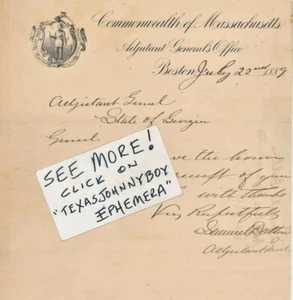 Commonwealth of Massachusetts
Adjutant General's Office
Boston July 22nd 1889
Adjutant Genal
State of Georgia
Genel.
have the honor
receipt of your
with thanks
Very Respectfully
Samuel Dalton
Adjutant Genl
SEE MORE!
CLICK ON
"TEXASJOHNNYBOY
EPHEMERA"